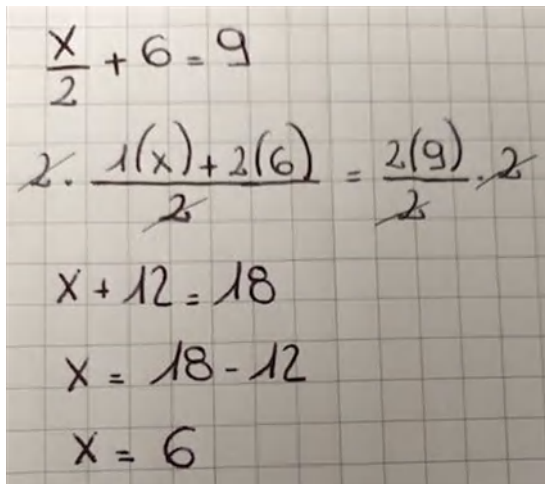 x/2 + 6 = 9
2 · (1(x) + 2(6))/2 = 2(9)/2 · 2
x + 12 = 18
x = 18 - 12
x = 6